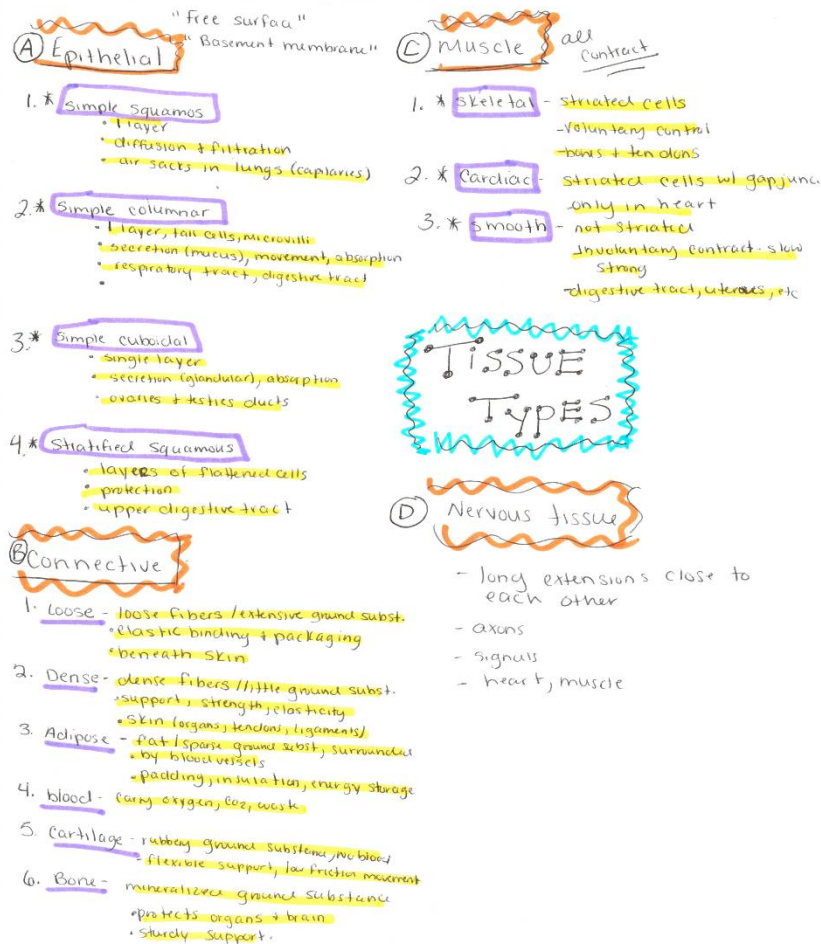 "Free surface"
"Basement membrane"
A Epithelial
1. * Simple squamos
• 1 layer
• diffusion & filtration
• air sacks in lungs (caplaries)
2. * Simple columnar
• 1 layer, tall cells, microvilli
• secretion (mucus), movement, absorption
• respiratory tract, digestive tract
•
3. * Simple cuboidal
• single layer
• secretion (glandular), absorption
• ovaries & testies ducts
4. * Stratified squamous
• layers of flattened cells
• protection
• upper digestive tract
B Connective
1. Loose - loose fibers / extensive ground subst.
• elastic binding & packaging
• beneath skin
2. Dense - dense fibers / little ground subst.
• support, strength, elasticity
• skin (organs, tendons, ligaments)
3. Adipose - fat / sparse ground subst, surrounded
• by blood vessels
• padding, insulation, energy storage
4. blood - carry oxygen, CO2, waste
5. Cartilage - rubbery ground substance, no blood
- flexible support, low friction movement
6. Bone - mineralized ground substance
• protects organs & brain
• sturdy support.
C Muscle all
contract
1. * Skeletal - striated cells
- voluntary control
- bones & tendons
2. * Cardiac - striated cells w/ gap junc.
only in heart
3. * smooth - not striated
involuntary contract. slow
strong
- digestive tract, uterous, etc
TISSUE
TYPES
D Nervous tissue
- long extensions close to
each other
- axons
- signals
- heart, muscle